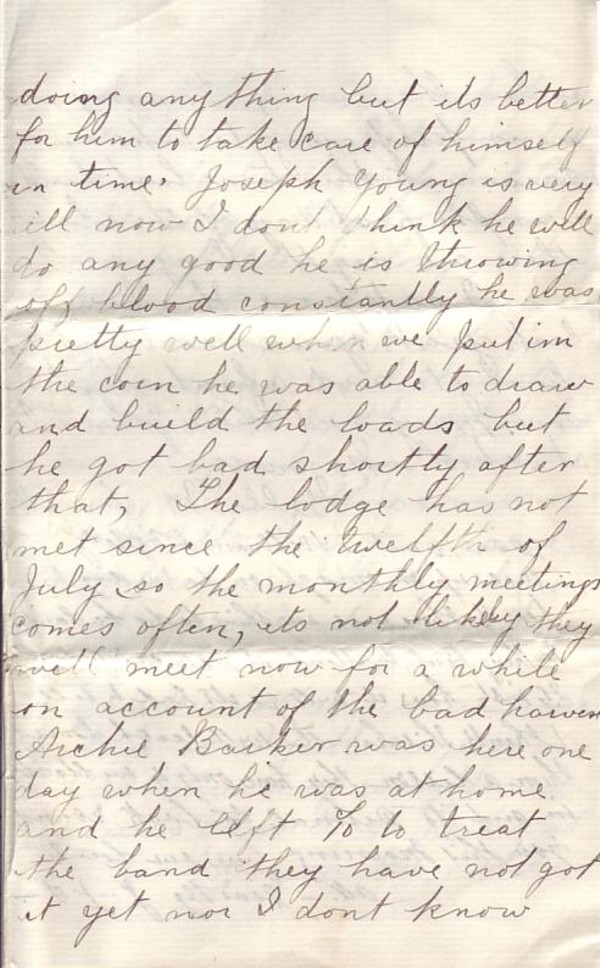 doing any thing but its better
for him to take care of himself
in time. Joseph Young is very
ill now I dont think he will
do any good he is throwing
off blood constantly he was
pretty well when we put in
the corn he was able to draw
and build the loads but
he got bad shortly after
that, The lodge has not
met since the twelfth of
July so the monthly meetings
comes often, its not likely they
will meet now for a while
on account of the bad
Archie Barker was here one
day when he was at home
and he left to treat
the band they have not got
it yet nor I dont know